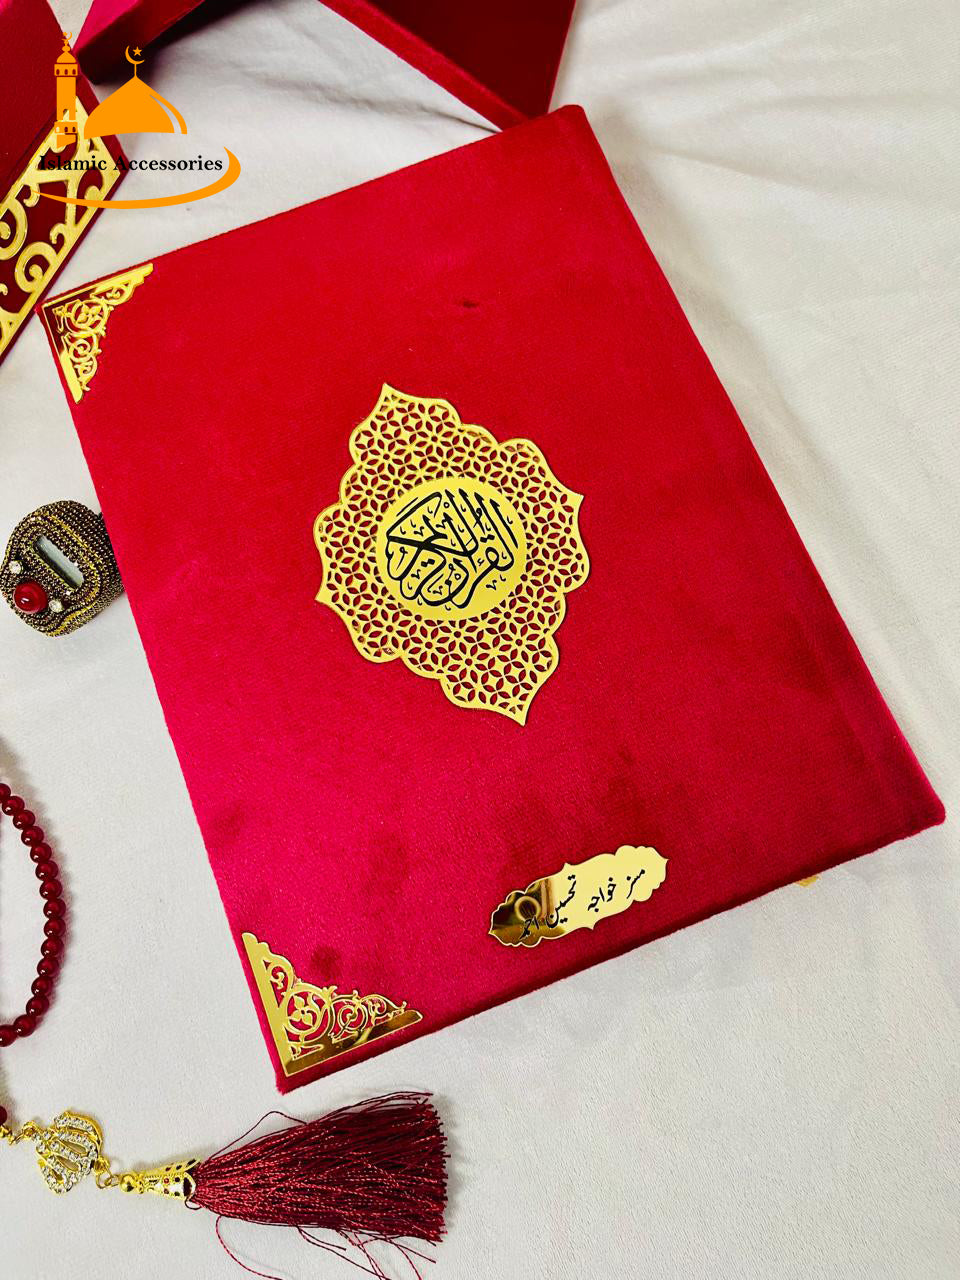 Islamic Accessories
القرآن الكريم
مسز خواجہ تحسین احمد